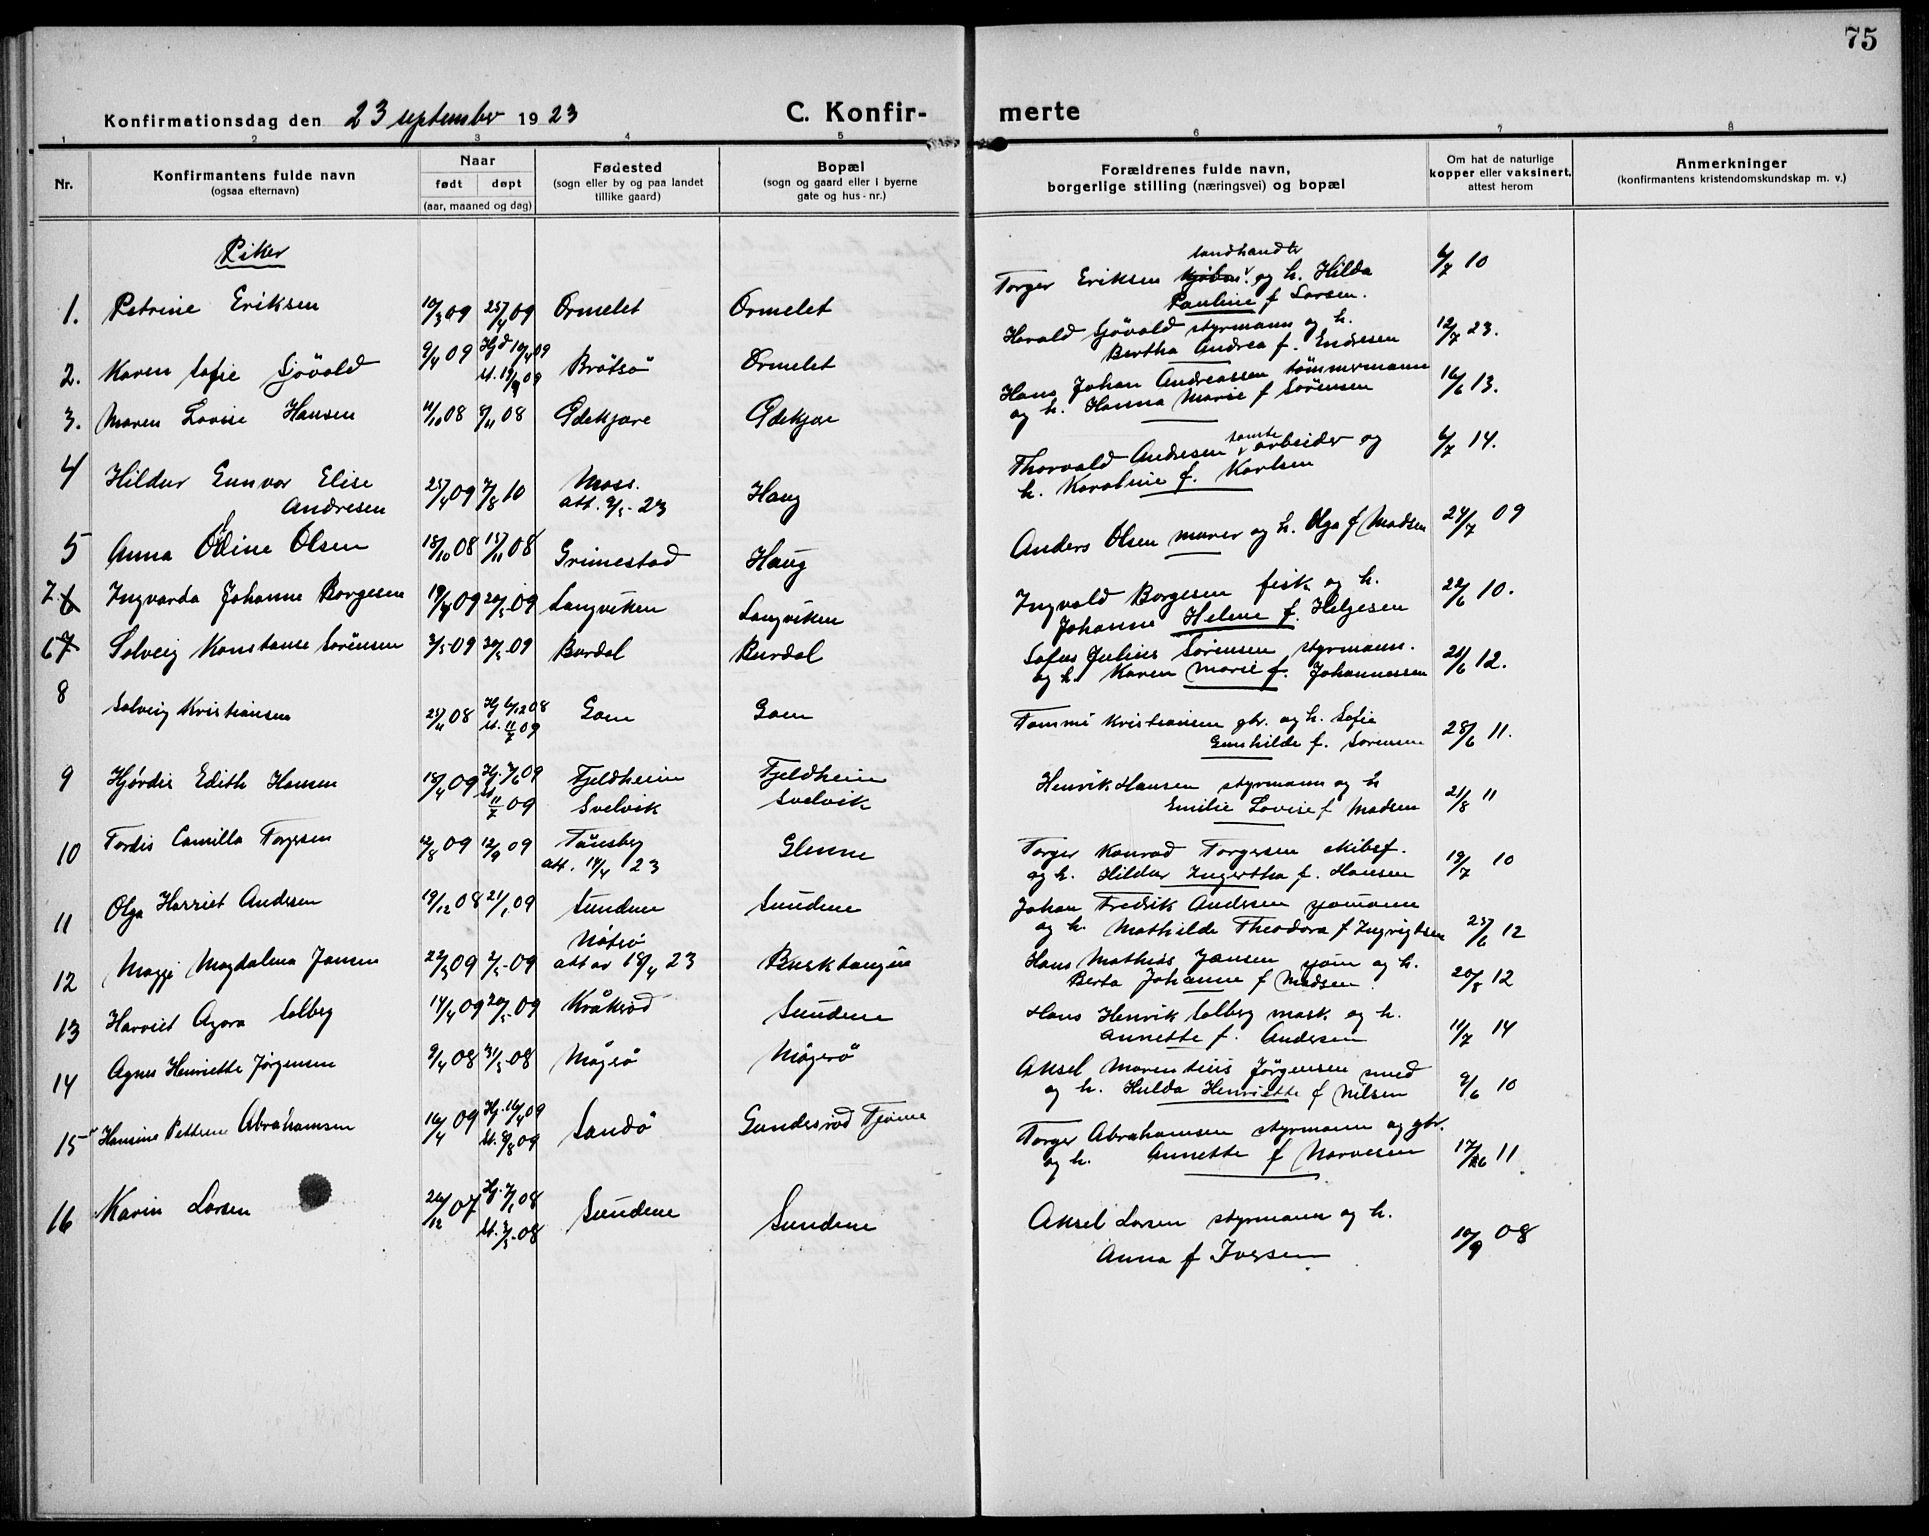 75
Konfirmationsdag den 23 september 1923
C. Konfir-
merte
1 2 3 4 5 6 7 8
Nr.
Konfirmantens fulde navn
(ogsaa efternavn)
Naar
født døpt
(aar, maaned og dag)
Fødested
(sogn eller by og paa landet
tillike gaard)
Bopæl
(sogn og gaard eller i byerne
gate og hus-nr.)
Forældrenes fulde navn,
borgerlige stilling (næringsvei) og bopæl
Om hat de naturlige
kopper eller vaksinert,
attest herom
Anmerkninger
(konfirmantens kristendomskundskap m. v.)
Piker
1. Petrine Eriksen 10/3 09 25/4 09 Ormelet Ormelet
landhandler
Torger Eriksen og h. Hilda 6/7 10
Pauline f Larsen.
2. Karen Sofie Sjövold 9/4 09 Hjd 10/4 09 Bråtsö Ormelet
Harald Sjövold styrmann og h. 12/7 23.
Bertha Andrea f. Endresen
3. Maren Lovise Hansen 11/10 08 8/11 08 Ødekjære Ødekjær
Hans Johan Andreassen tömmermann 16/6 13.
og h. Hanna Marie f Sörensen
4 Hildur Gunvor Elise 25/4 09 7/8 10 Moss. Haug
Andresen att. 9/5 - 23
Thorvald Andresen tomte arbeider og 6/7 14.
h. Karoline f. Karlsen
5 Anna Odine Olsen 18/10 08 15/11 08 Grimestad Haug
Anders Olsen murer og h. Olga f Madsen 24/7 09
7. 6 Ingvarda Johanne Borgesen 19/4 09 20/5 - 09 Langviken Langviken
Ingvald Borgesen fisk og h. 22/6 10.
Johanne Helene f. Helgesen
6 7 Solveig Konstanse Sörensen 3/5 - 09 30/5 - 09 Burdal Burdal
Sofus Julius Sörensen styrmann. 21/6 12.
og h. Karen Marie f. Johannessen
8 Solveig Kristiansen 25/11 08 Hj 6/12 08 Goen Goen
st. 11/7 09
Tommi Kristiansen gbr. og h. Sofie 28/6 11.
Gunhilde f. Sörensen
9 Hjördis Edith Hansen 18/4 09 Hj. 7/6 09 Fjeldheim Fjeldheim
st 11/7 09 Svelvik Svelvik
Henrik Hansen styrmann og h 21/8 11
Emilie Lovise f Madsen
10 Tordis Camilla Torgersen 12/8 09 12/9 09 Tönsberg Glenne
att. 14/4 23
Torger Konrad Torgersen skibsf. 19/7 10
og h. Hildur Ingertha f. Hansen
11 Olga Harriet Andersen 19/12 08 21/1 09 Sundene Sundene
Johan Fredrik Andersen sjömann
og h. Mathilde Theodora f Ingvigtsen 25/6 12
12 Maggi Magdalena Jansen 22/3 09 2/5 - 09 Nötrö Busktangen
att av 18/4 23
Hans Mathias Jansen sjöm og h. 20/8 12
Berta Johanne f Madsen
13 Harriet Agora Solberg 14/4 09 20/5 - 09 Kråkröd Sundene
Hans Henrik Solberg mask og h. 11/7 14
Annette f. Andersen
14 Agnes Henriette Jørgensen 9/4 08 31/5 - 08 Mågerö Mågerö
Aksel Marentius Jørgensen smed 9/6 10
og h. Hulda Henriette f Nilsen
15 Hansine Petrine Abrahamsen 16/4 09 Hj. 16/4 09 Sandö Gundesröd Tjöme
st. 8/8 09
Torger Abrahamsen styrmann og gbr.
og h. Annette f Narvesen 11.
16 Karin Larsen 26/12 07 Hj. 7/1 08 Sundene Sundene
st. 3/5 - 08
Aksel Larsen styrmann og h. 10/9 08
Anna f Iversen